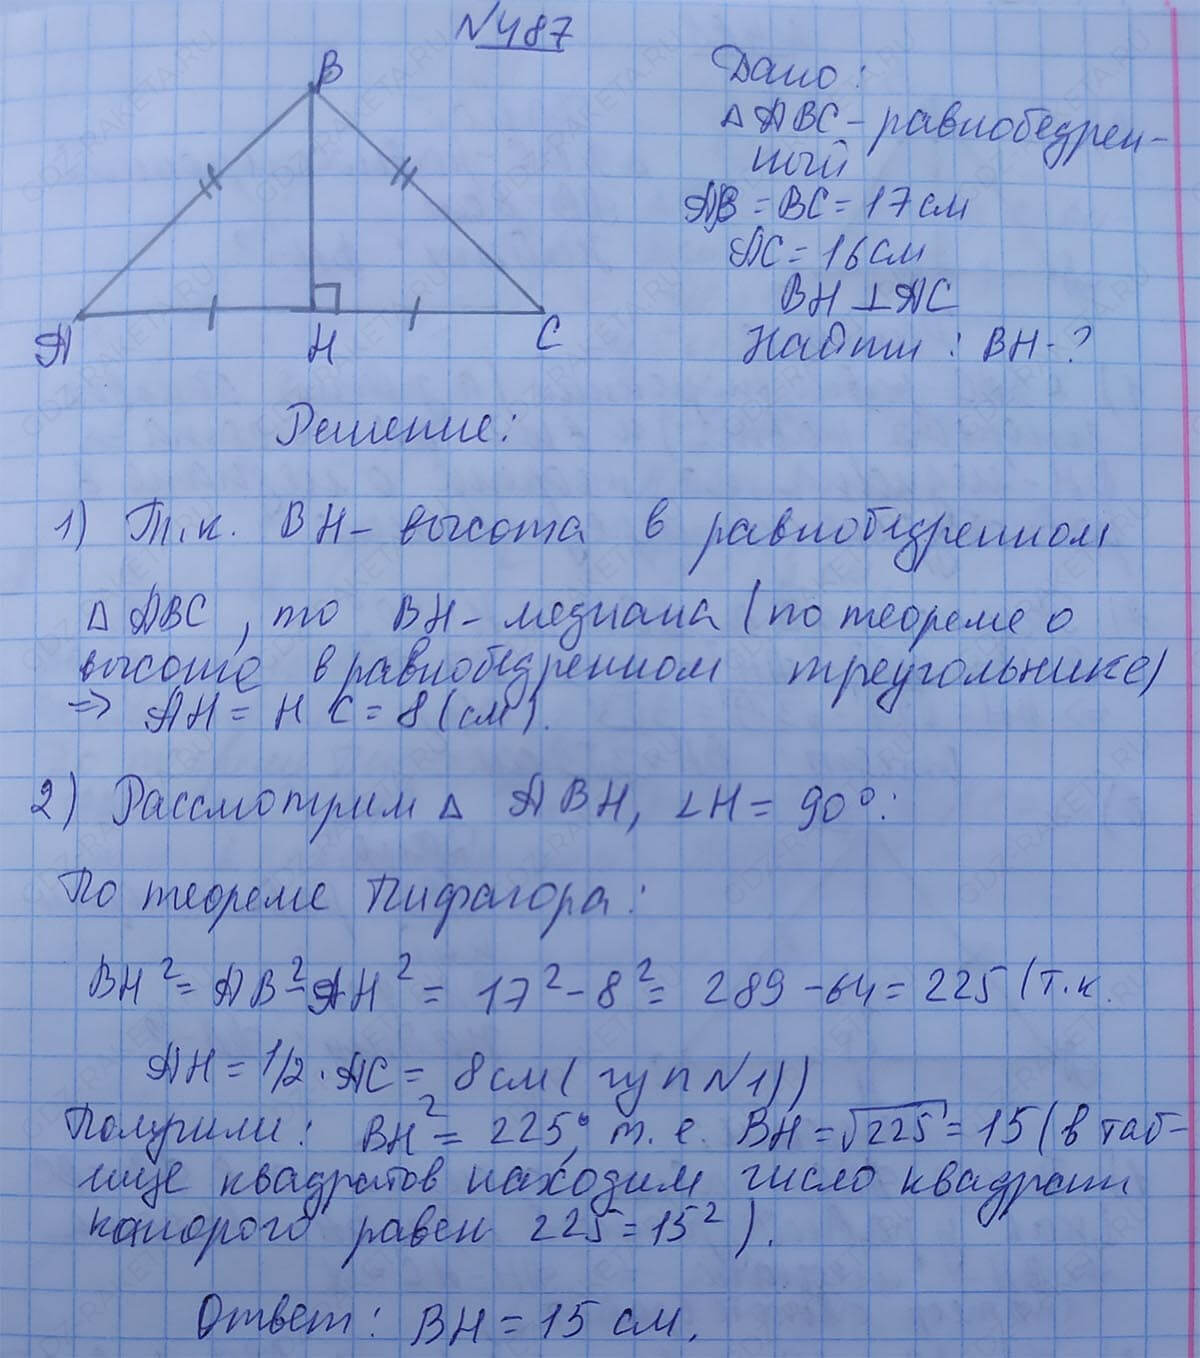 N487
B
A
H
C
Дано:
△ABC - равнобедрен-
ный
AB = BC = 17 см
AC = 16 см
BH ⊥ AC
Найти: BH - ?
Решение:
1) Т.к. BH - высота в равнобедренном
△ ABC, то BH - медиана (по теореме о
высоте в равнобедренном треугольнике)
=> AH = HC = 8 (см).
2) Рассмотрим △ ABH, ∠H = 90°:
По теореме Пифагора:
BH² = AB² - AH² = 17² - 8² = 289 - 64 = 225 (т.к.
AH = 1/2 · AC = 8 см ( п N1))
Получили: BH² = 225, т.е. BH = √225 = 15 (в таб-
лице квадратов находим число квадрат
которого равен 225 = 15²).
Ответ: BH = 15 см.